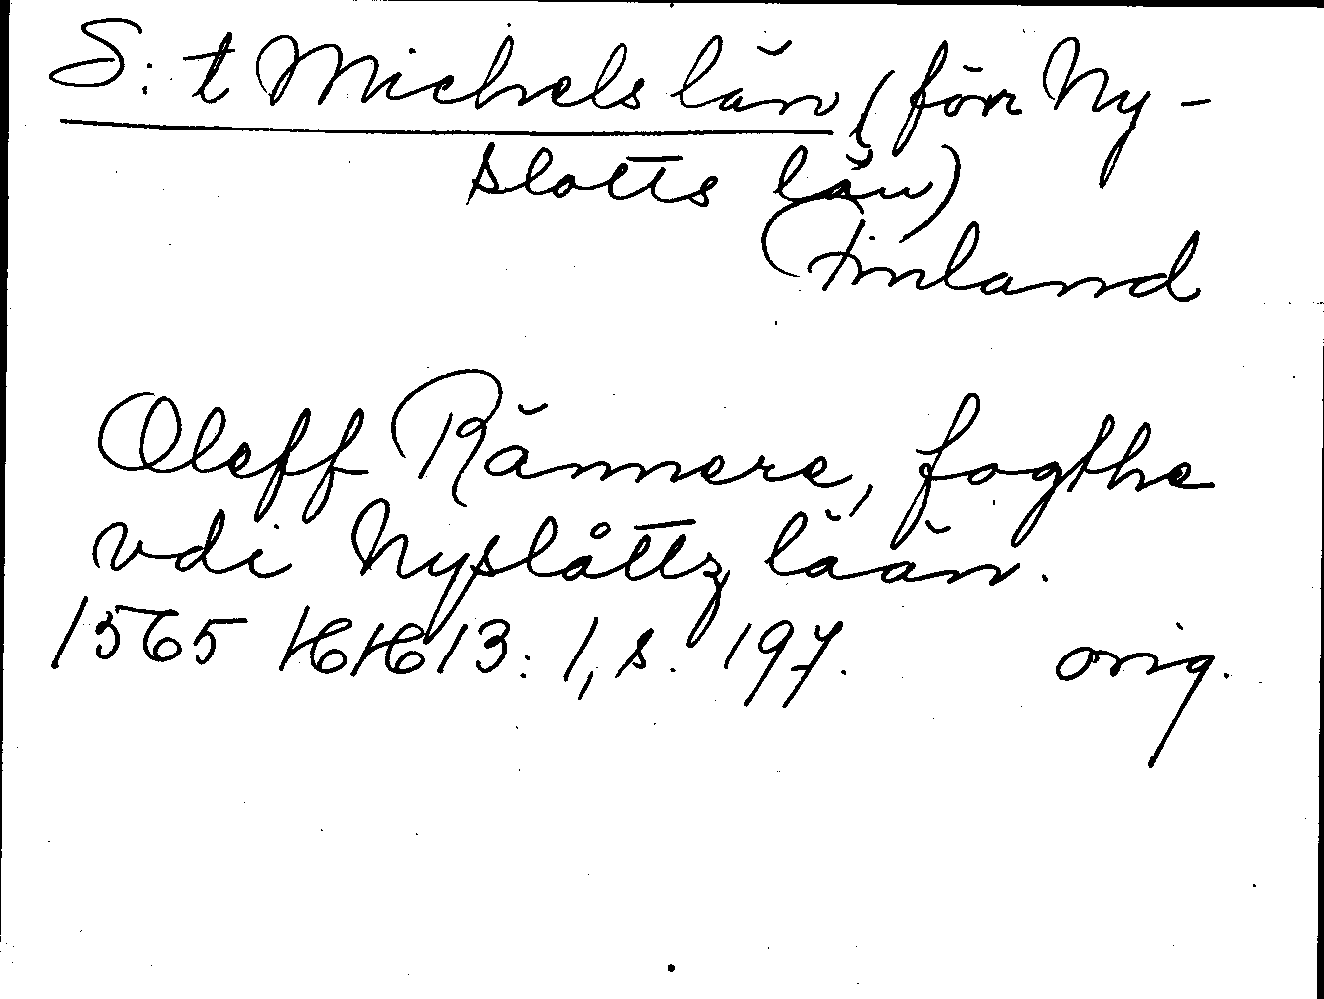 S:t Michels län (förr Ny-
slotts län)
Finland
Oleff Rännere, fogthe
vdi Nyslåttz lään.
1565 HH 13:1, s. 197. orig.